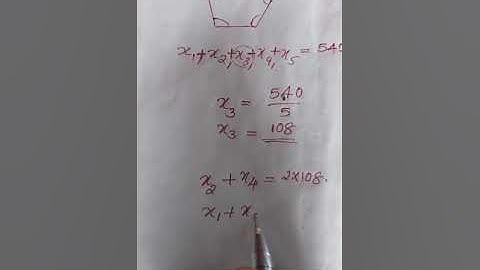 x₁+x₂+x₃+x₄+x₅ = 540
x₃ = 540/5
x₃ = 108
x₂ + x₄ = 2x108.
x₁ + x